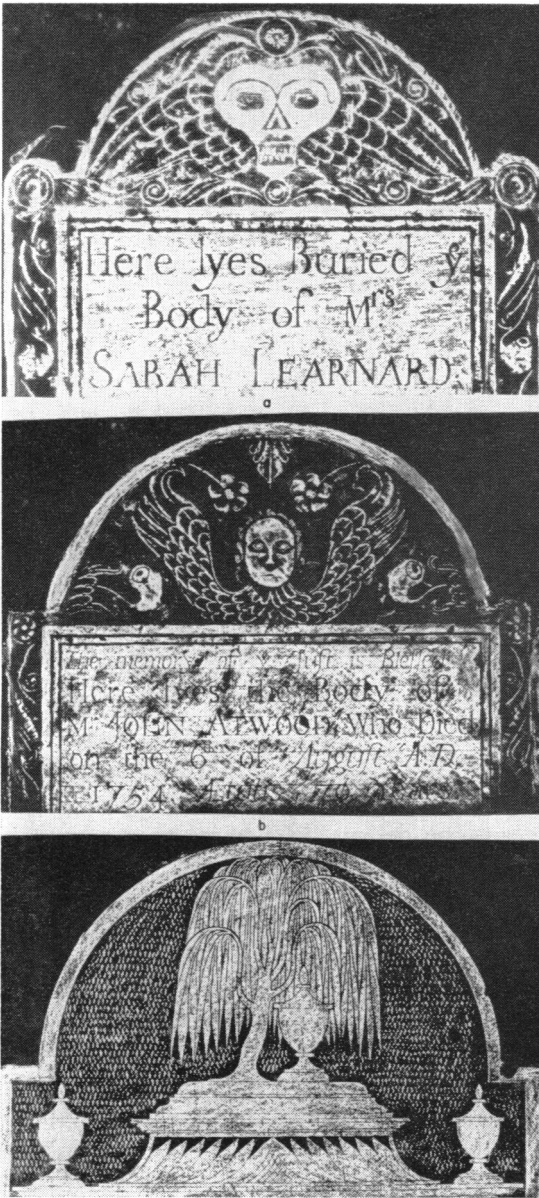 Here lyes Buried yͤ
Body of Mʳˢ
SARAH LEARNARD.
a
The memory of yͤ Juſt is Bleſed
Here lyes the Body of
Mʳ JOHN ATWOOD Who Died
on the 6 of Auguſt A.D.
1754
b